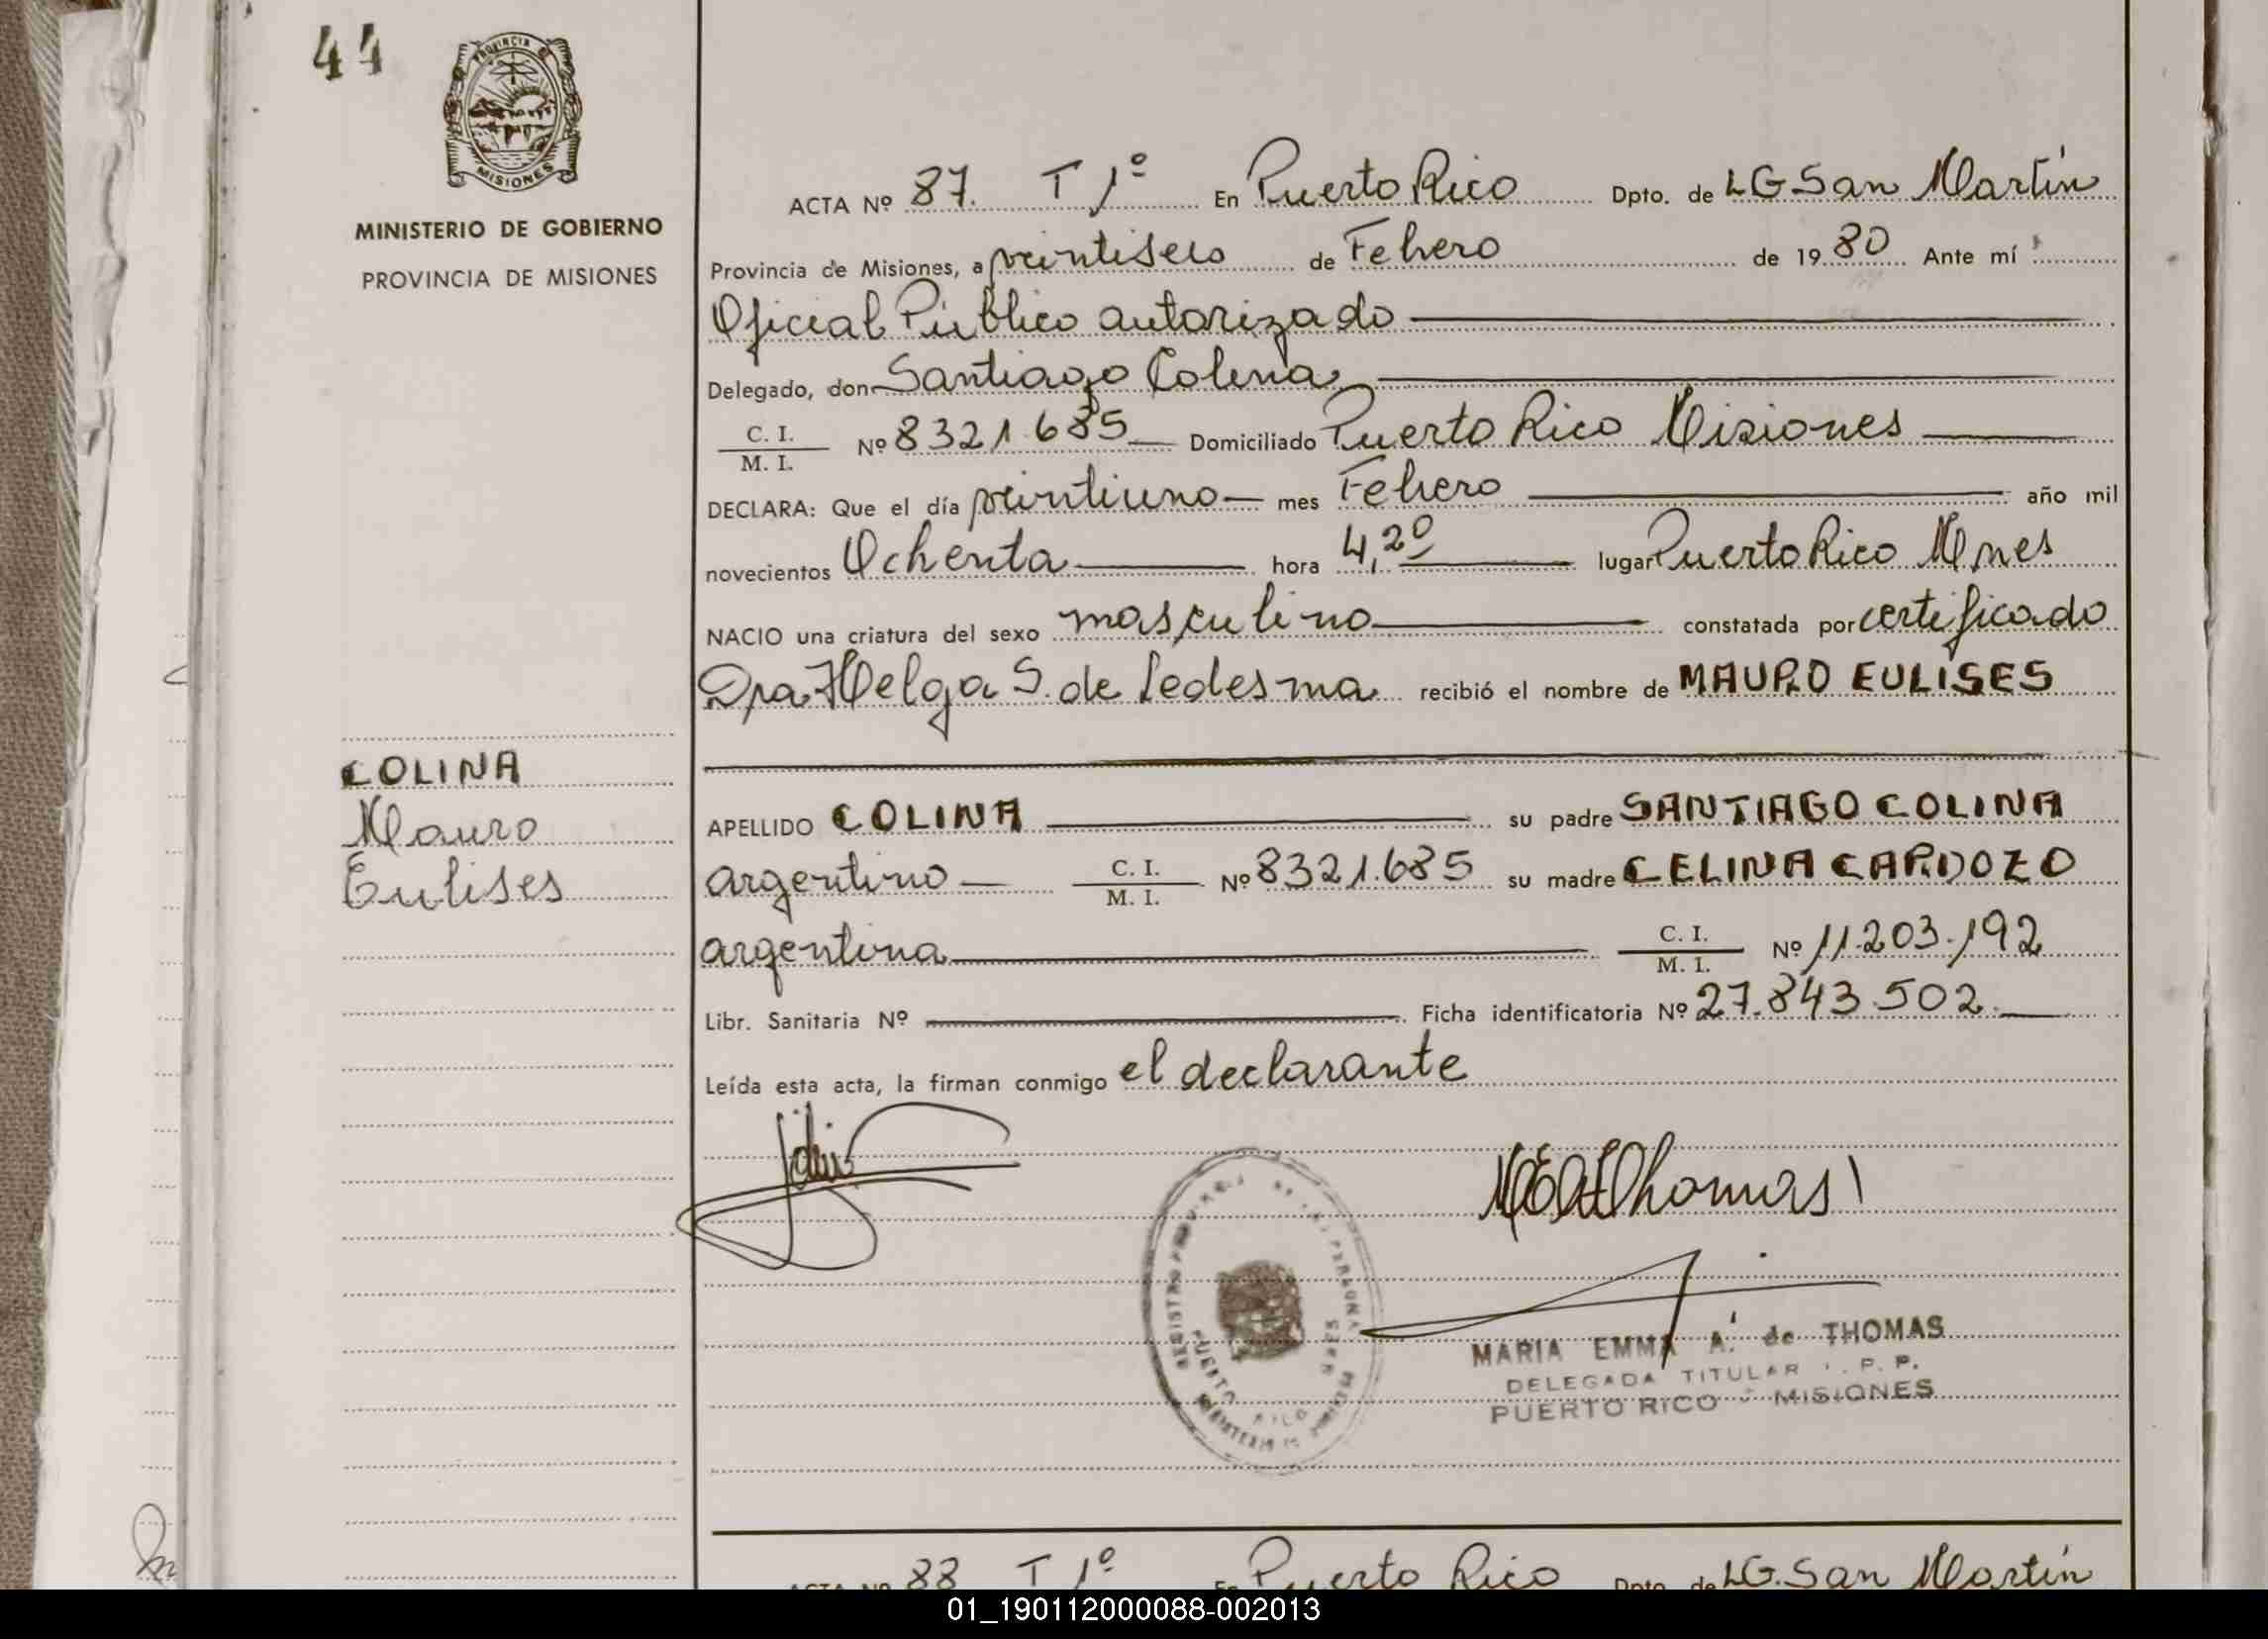 44
PROVINCIA DE
MISIONES
MINISTERIO DE GOBIERNO
PROVINCIA DE MISIONES
COLINA
Mauro
Eulises
ACTA Nº 87. T 1º En Puerto Rico Dpto. de LG San Martín
Provincia de Misiones, a veintiseis de Febrero de 1980 Ante mí
Oficial Público autorizado
Delegado, don Santiago Colina
C. I. / M. I. Nº 8321.685 Domiciliado Puerto Rico Misiones
DECLARA: Que el día veintiuno mes Febrero año mil
novecientos Ochenta hora 4,20 lugar Puerto Rico Mnes
NACIO una criatura del sexo masculino constatada por certificado
Dra Helga S. de Ledesma recibió el nombre de MAURO EULISES
APELLIDO COLINA su padre SANTIAGO COLINA
argentino C. I. / M. I. Nº 8321.685 su madre CELINA CARDOZO
argentina C. I. / M. I. Nº 11.203.192
Libr. Sanitaria Nº Ficha identificatoria Nº 27.843.502
Leída esta acta, la firman conmigo el declarante
Thomas
MARIA EMMA A. de THOMAS
DELEGADA TITULAR P. P.
PUERTO RICO - MISIONES
ACTA Nº 88 T 1º En Puerto Rico Dpto. de LG. San Martín
01_190112000088-002013